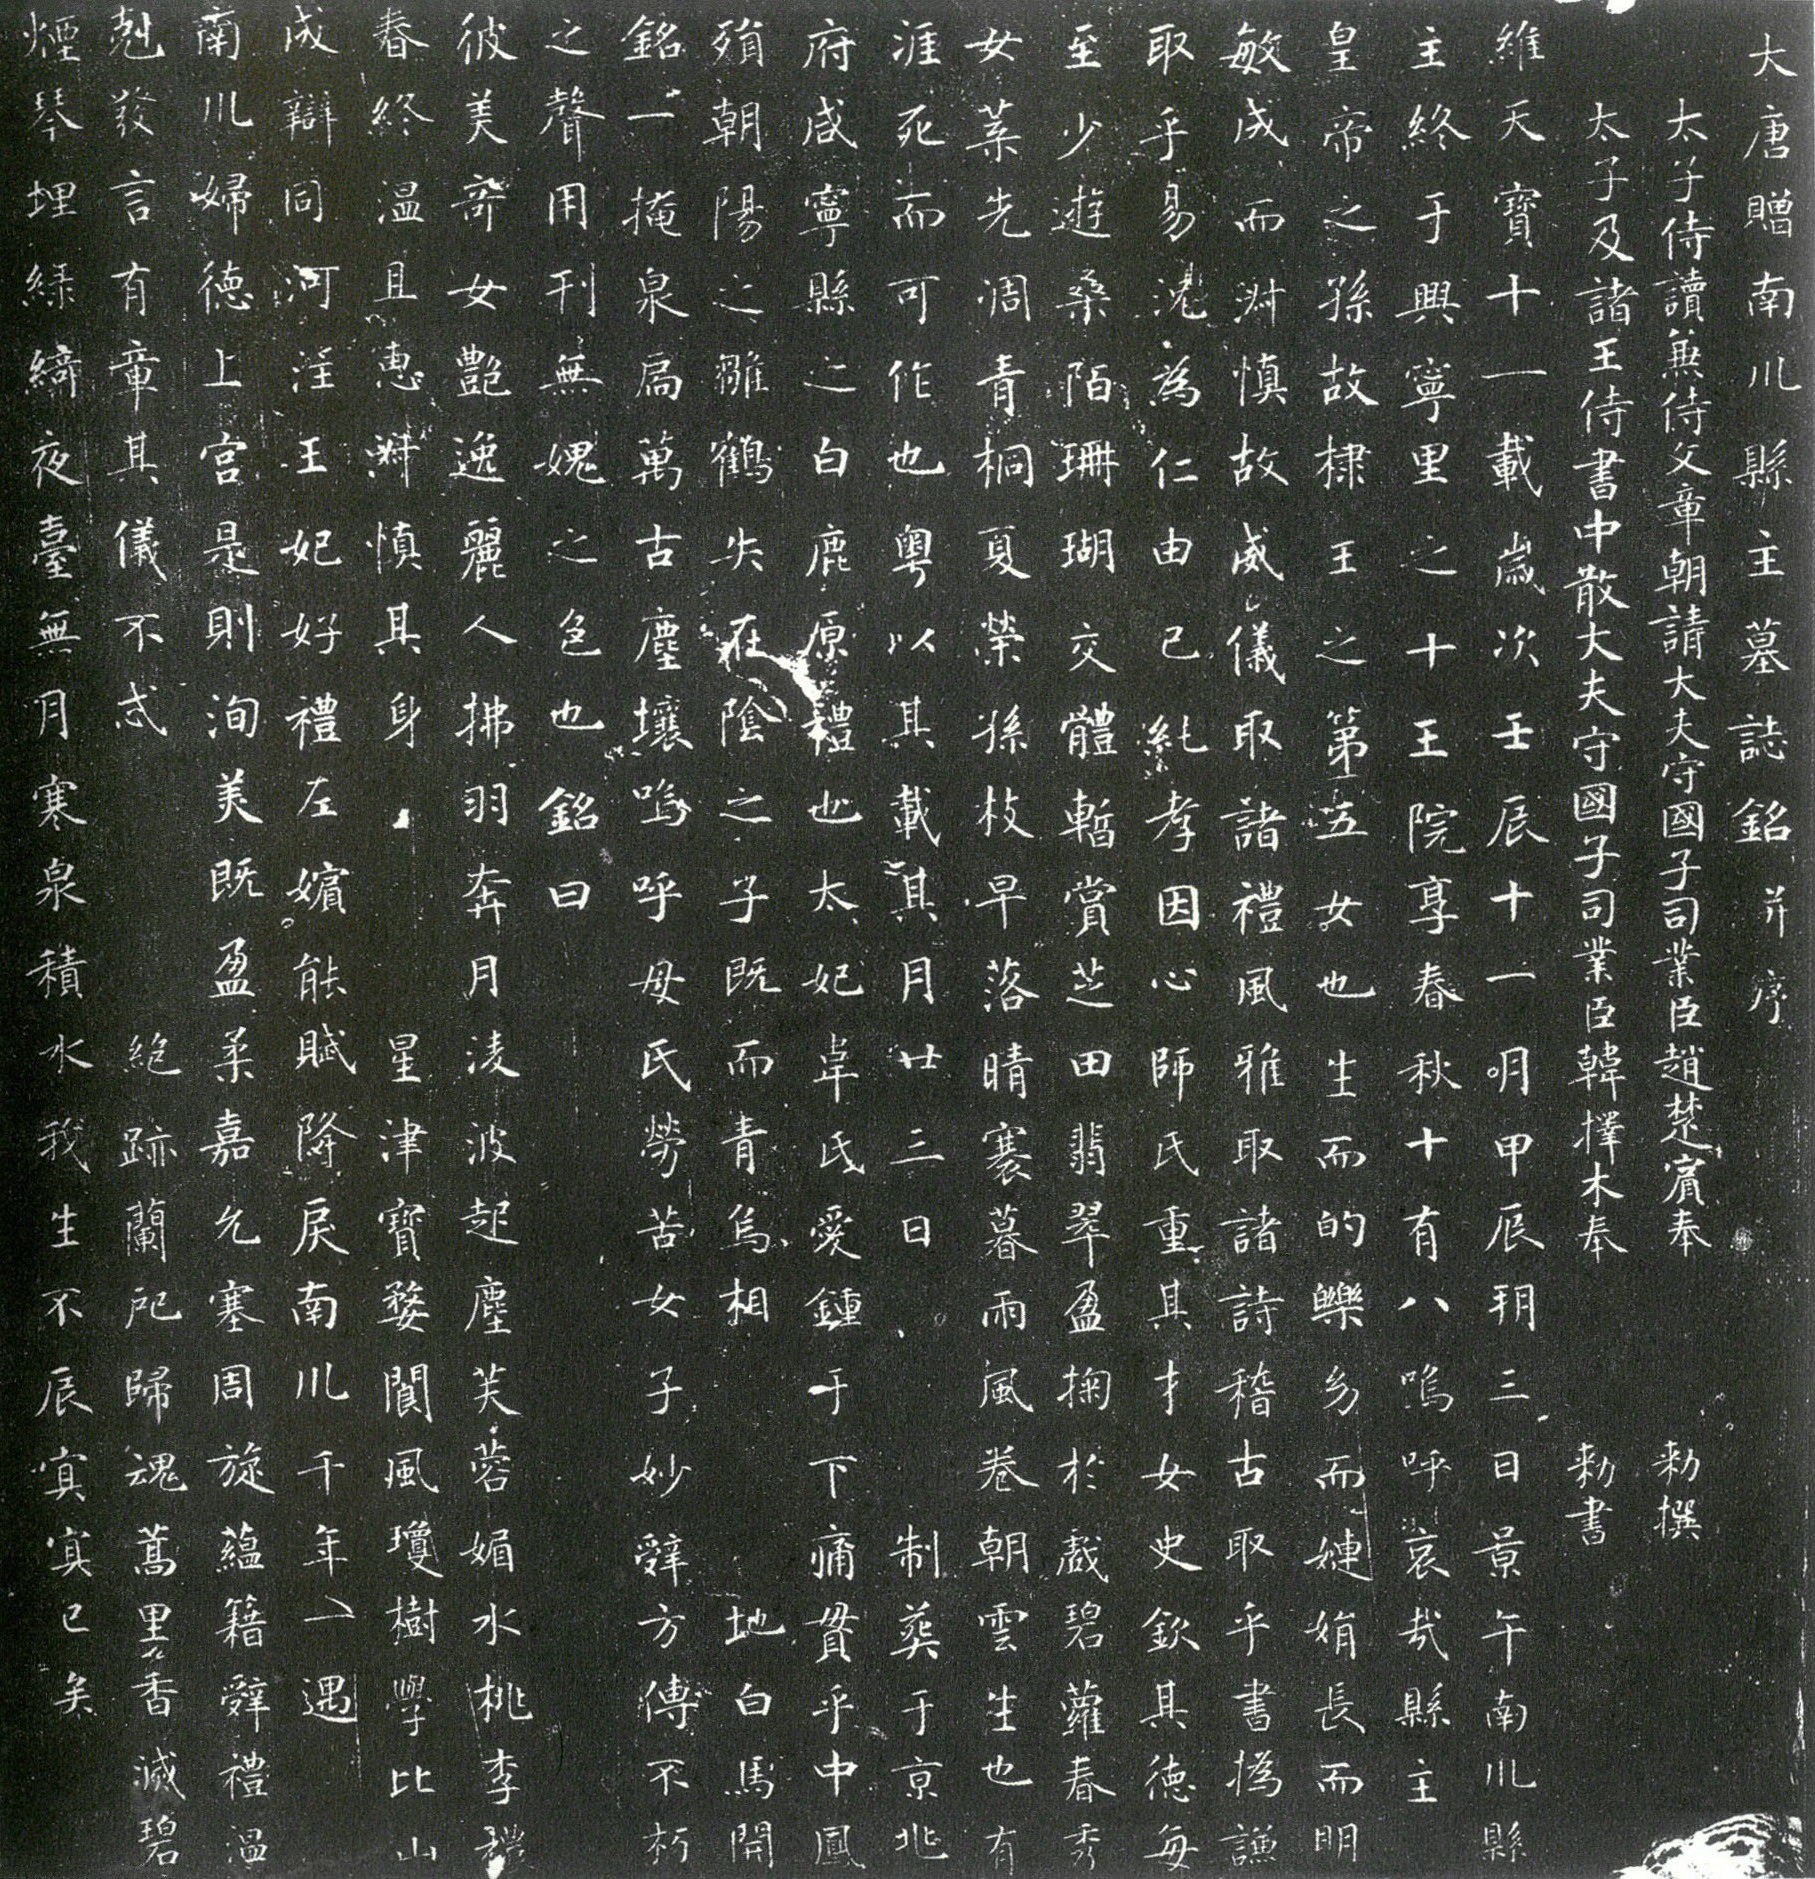 大唐贈南川縣主墓誌銘并序
太子侍讀兼侍文章朝請大夫守國子司業臣趙楚賓奉　勅撰
太子及諸王侍書中散大夫守國子司業臣韓擇木奉　勅書
維天寶十一載歲次壬辰十一月甲辰朔三日景午南川縣
主終于興寧里之十王院享春秋十有八嗚呼哀哉縣主
皇帝之孫故棣王之第五女也生而的皪幼而婕娟長而明
敏成而淋慎故威儀取諸禮風雅取諸詩稽古取乎書撝謙
取乎易洸為仁由己純孝因心師氏重其才女史欽其德每
至少遊桑陌珊瑚交體暫賞芝田翡翠盈掬於戲碧蘿春秀
女葉先凋青桐夏榮孫枝早落晴褰暮雨風卷朝雲生也有
涯死而可作也粵以其載其月廿三日　制葬于京兆
府咸寧縣之白鹿原禮也太妃卓氏愛鍾于下痛貫乎中鳳
殞朝陽之雛鶴失在陰之子既而青烏相　地白馬開
銘一掩泉扃萬古塵壤嗚呼母氏勞苦女子妙辭方傳不朽
之聲用刊無媿之色也銘曰
彼美奇女艷逸麗人拂羽奔月淩波起塵芙蓉媚水桃李穠
春終溫且惠淋慎其身　星津寶婺閬風瓊樹學比山
成辯同河注王妃好禮左嬪能賦降戾南川千年一遇
南川婦德上宮是則洵美既盈柔嘉允塞周旋蘊籍辭禮溫
剋發言有章其儀不忒　絕跡蘭戺歸魂蒿里香滅碧
煙琴埋綠綺夜臺無月寒泉積水我生不辰寘寘已矣